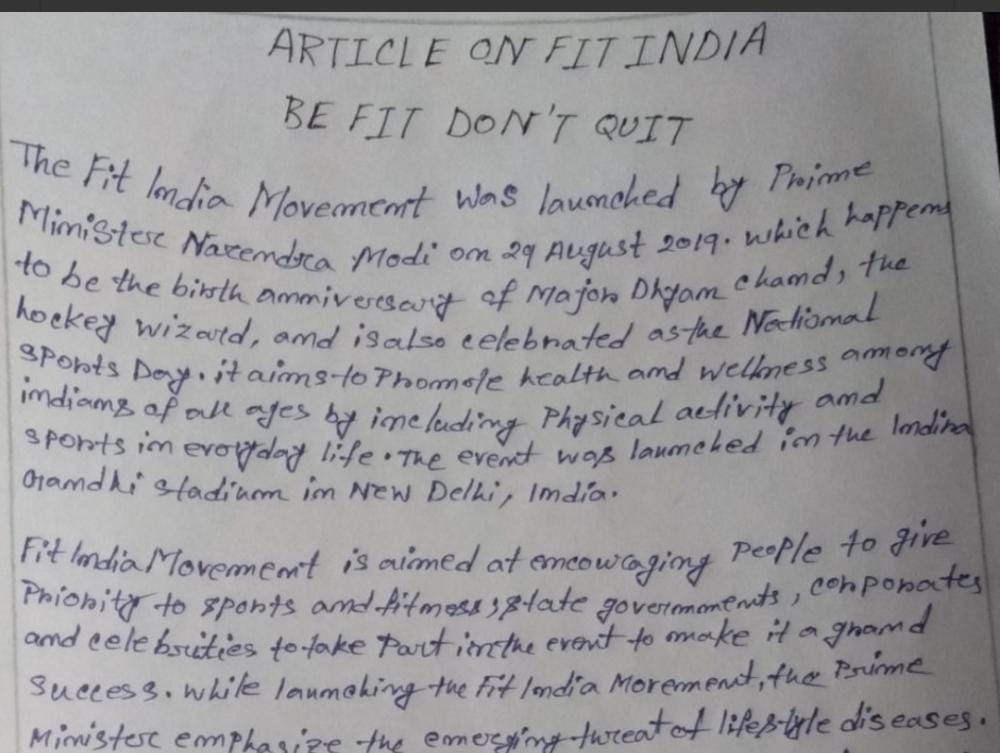 ARTICLE ON FIT INDIA
BE FIT DON'T QUIT
The Fit India Movement was launched by Prime
Minister Narendra Modi on 29 August 2019. which happens
to be the birth anniversary of Major Dhyan chand, the
hockey wizard, and is also celebrated as the National
sports Day. it aims to Promote health and wellness among
indians of all ages by including Physical activity and
sports in everyday life. The event was launched in the Indira
Gandhi stadium in New Delhi, India.
Fit India Movement is aimed at encouraging People to give
Priority to sports and fitness, state governments, corporates
and celebrities to take Part in the event to make it a grand
success. while launching the Fit India Movement, the Prime
Minister emphasize the emerging threat of lifestyle diseases.